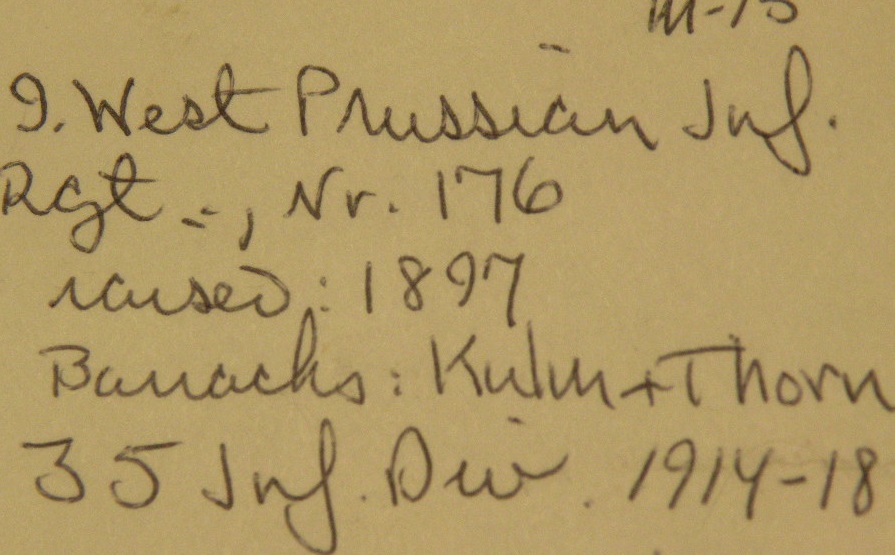 III-15
9. West Prussian Inf.
Rgt -, Nr. 176
raised: 1897
Barracks: Kulm + Thorn
35 Inf. Div. 1914-18